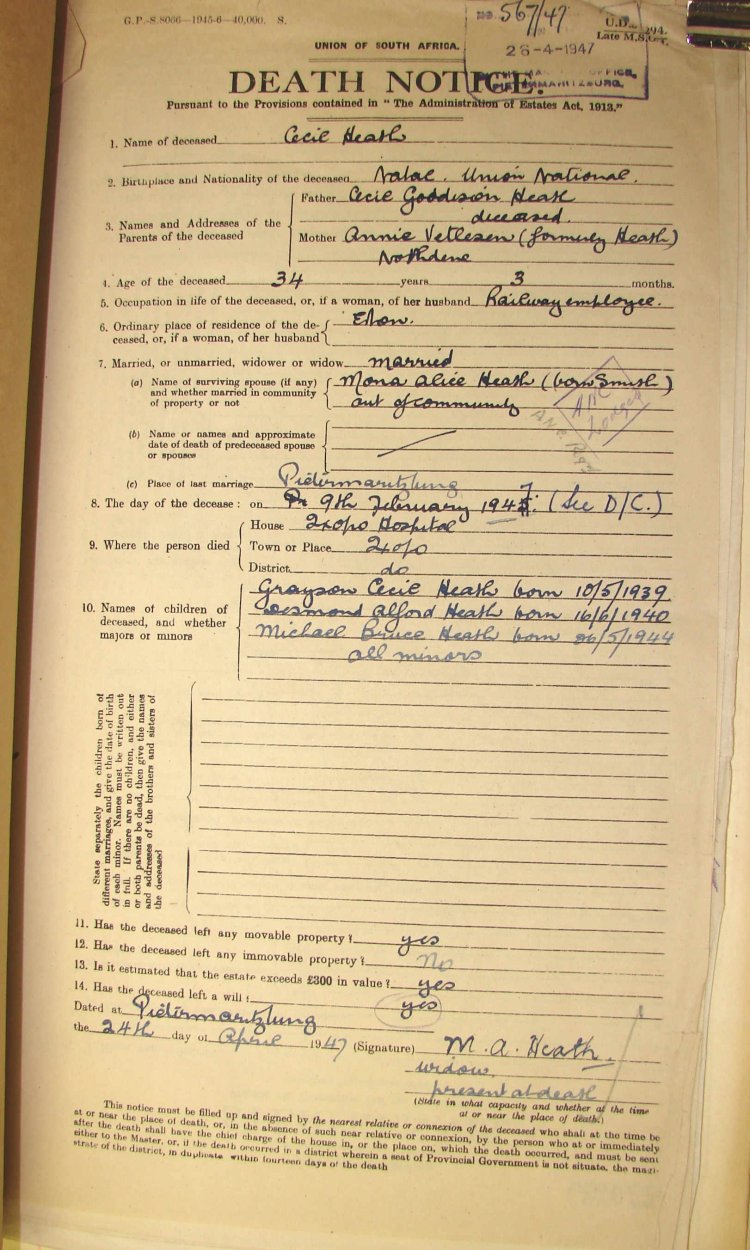 G.P.-S.8066—1945-6—40,000. S.
NO. 567/47
U.D. 294.
Late M.S.C.
26-4-1947
UNION OF SOUTH AFRICA.
DEATH NOTICE.
Pursuant to the Provisions contained in "The Administration of Estates Act, 1913."
1. Name of deceased Cecil Heath
2. Birthplace and Nationality of the deceased Natal. Union National.
3. Names and Addresses of the Parents of the deceased
Father Cecil Goddison Heath
deceased.
Mother Annie Vetlesen (formerly Heath)
Northdene
4. Age of the deceased 34 years 3 months.
5. Occupation in life of the deceased, or, if a woman, of her husband Railway employee.
6. Ordinary place of residence of the de-
ceased, or, if a woman, of her husband
7. Married, or unmarried, widower or widow married
(a) Name of surviving spouse (if any)
and whether married in community
of property or not
Mona Alice Heath (born Smith)
out of community
Lodged
(b) Name or names and approximate
date of death of predeceased spouse
or spouses
(c) Place of last marriage Pietermaritzburg
8. The day of the decease: on 9th February 1947. (See D/C.)
9. Where the person died
House Ixopo Hospital
Town or Place Ixopo
District do
10. Names of children of
deceased, and whether
majors or minors
Grayson Cecil Heath born 10/5/1939
Desmond Alford Heath born 16/6/1940
Michael Bruce Heath born 26/5/1944
all minors
State separately the children born of
different marriages, and give the date of birth
of each minor. Names must be written out
in full. If there are no children, and either
or both parents be dead, then give the names
and addresses of the brothers and sisters of
the deceased
11. Has the deceased left any movable property? yes
12. Has the deceased left any immovable property? No
13. Is it estimated that the estate exceeds £300 in value? yes
14. Has the deceased left a will? yes
Dated at Pietermaritzburg
the 24th day of April 1947 (Signature) M. A. Heath.
widow.
present at death
(State in what capacity and whether at the time
at or near the place of death.)
This notice must be filled up and signed by the nearest relative or connexion of the deceased who shall at the time be
at or near the place of death, or, in the absence of such near relative or connexion, by the person who at or immediately
after the death shall have the chief charge of the house in, or the place on, which the death occurred, and must be sent
either to the Master, or, if the death occurred in a district wherein a seat of Provincial Government is not situate, the magi-
strate of the district, in duplicate within fourteen days of the death